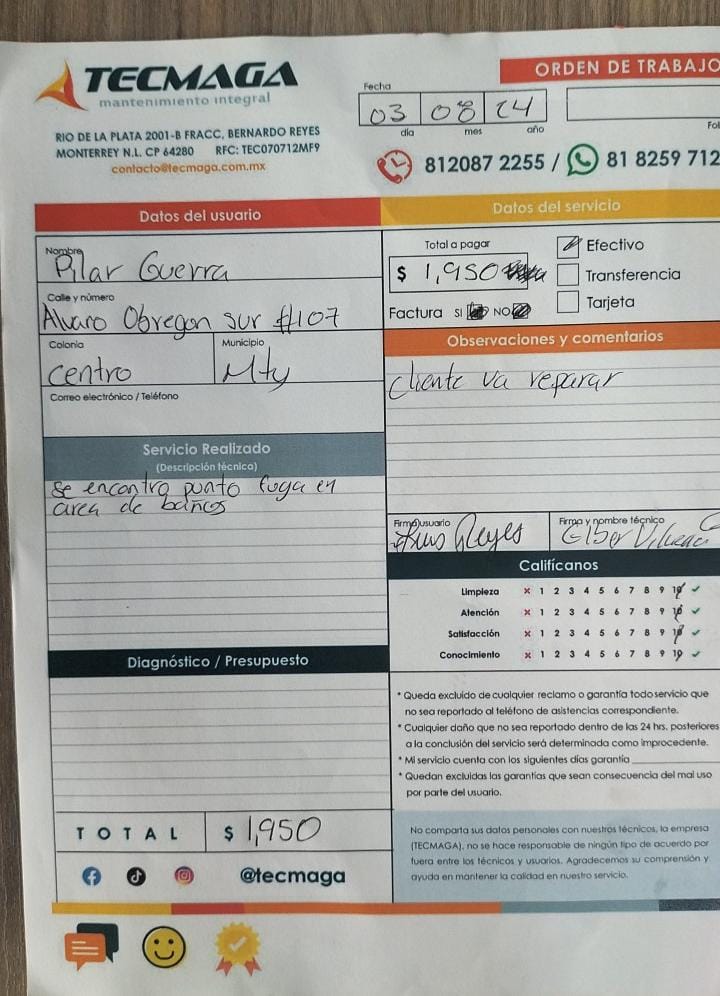 TECMAGA
mantenimiento integral
RIO DE LA PLATA 2001-B FRACC, BERNARDO REYES
MONTERREY N.L. CP 64280 RFC: TEC070712MF9
contacto@tecmaga.com.mx
ORDEN DE TRABAJO
Fecha
03 08 24
día mes año
Fol
812087 2255 / 81 8259 712
Datos del usuario
Nombre
Pilar Guerra
Calle y número
Alvaro Obregon sur #107
Colonia Municipio
centro Mty
Correo electrónico / Teléfono
Servicio Realizado
(Descripción técnica)
se encontro punto fuga en
area de baños
Diagnóstico / Presupuesto
TOTAL $ 1,950
@tecmaga
Datos del servicio
Total a pagar
$ 1,950
Efectivo
Transferencia
Tarjeta
Factura SI NO
Observaciones y comentarios
cliente va reparar
Firma usuario Firma y nombre técnico
Reyes
Califícanos
Limpieza x 1 2 3 4 5 6 7 8 9 10 ✓
Atención x 1 2 3 4 5 6 7 8 9 10 ✓
Satisfacción x 1 2 3 4 5 6 7 8 9 10 ✓
Conocimiento x 1 2 3 4 5 6 7 8 9 10 ✓
* Queda excluido de cualquier reclamo o garantía todo servicio que
no sea reportado al teléfono de asistencias correspondiente.
* Cualquier daño que no sea reportado dentro de las 24 hrs. posteriores
a la conclusión del servicio será determinada como improcedente.
* Mi servicio cuenta con los siguientes días garantía
* Quedan excluidas las garantías que sean consecuencia del mal uso
por parte del usuario.
No comparta sus datos personales con nuestros técnicos, la empresa
(TECMAGA), no se hace responsable de ningún tipo de acuerdo por
fuera entre los técnicos y usuarios. Agradecemos su comprensión y
ayuda en mantener la calidad en nuestro servicio.